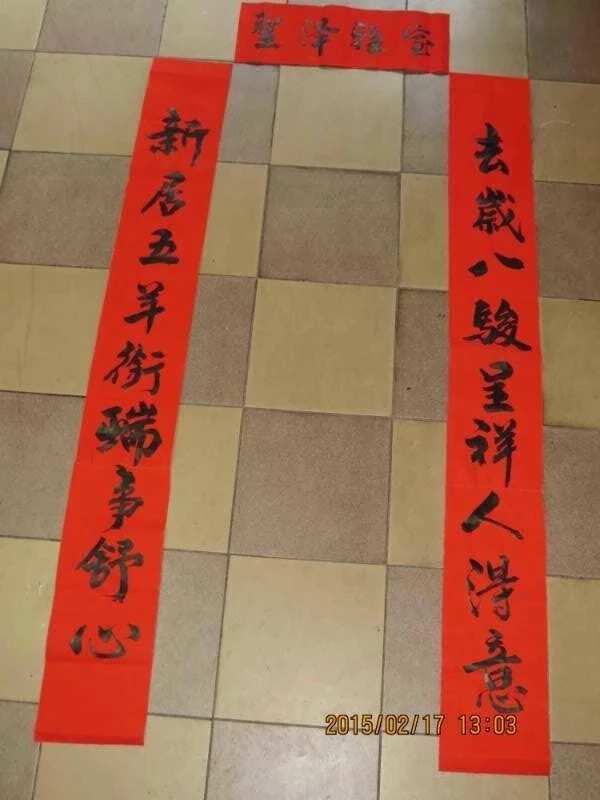 聖泽雅室
去歲八駿呈祥人得意
新居五羊銜瑞事舒心
2015/02/17 13:03